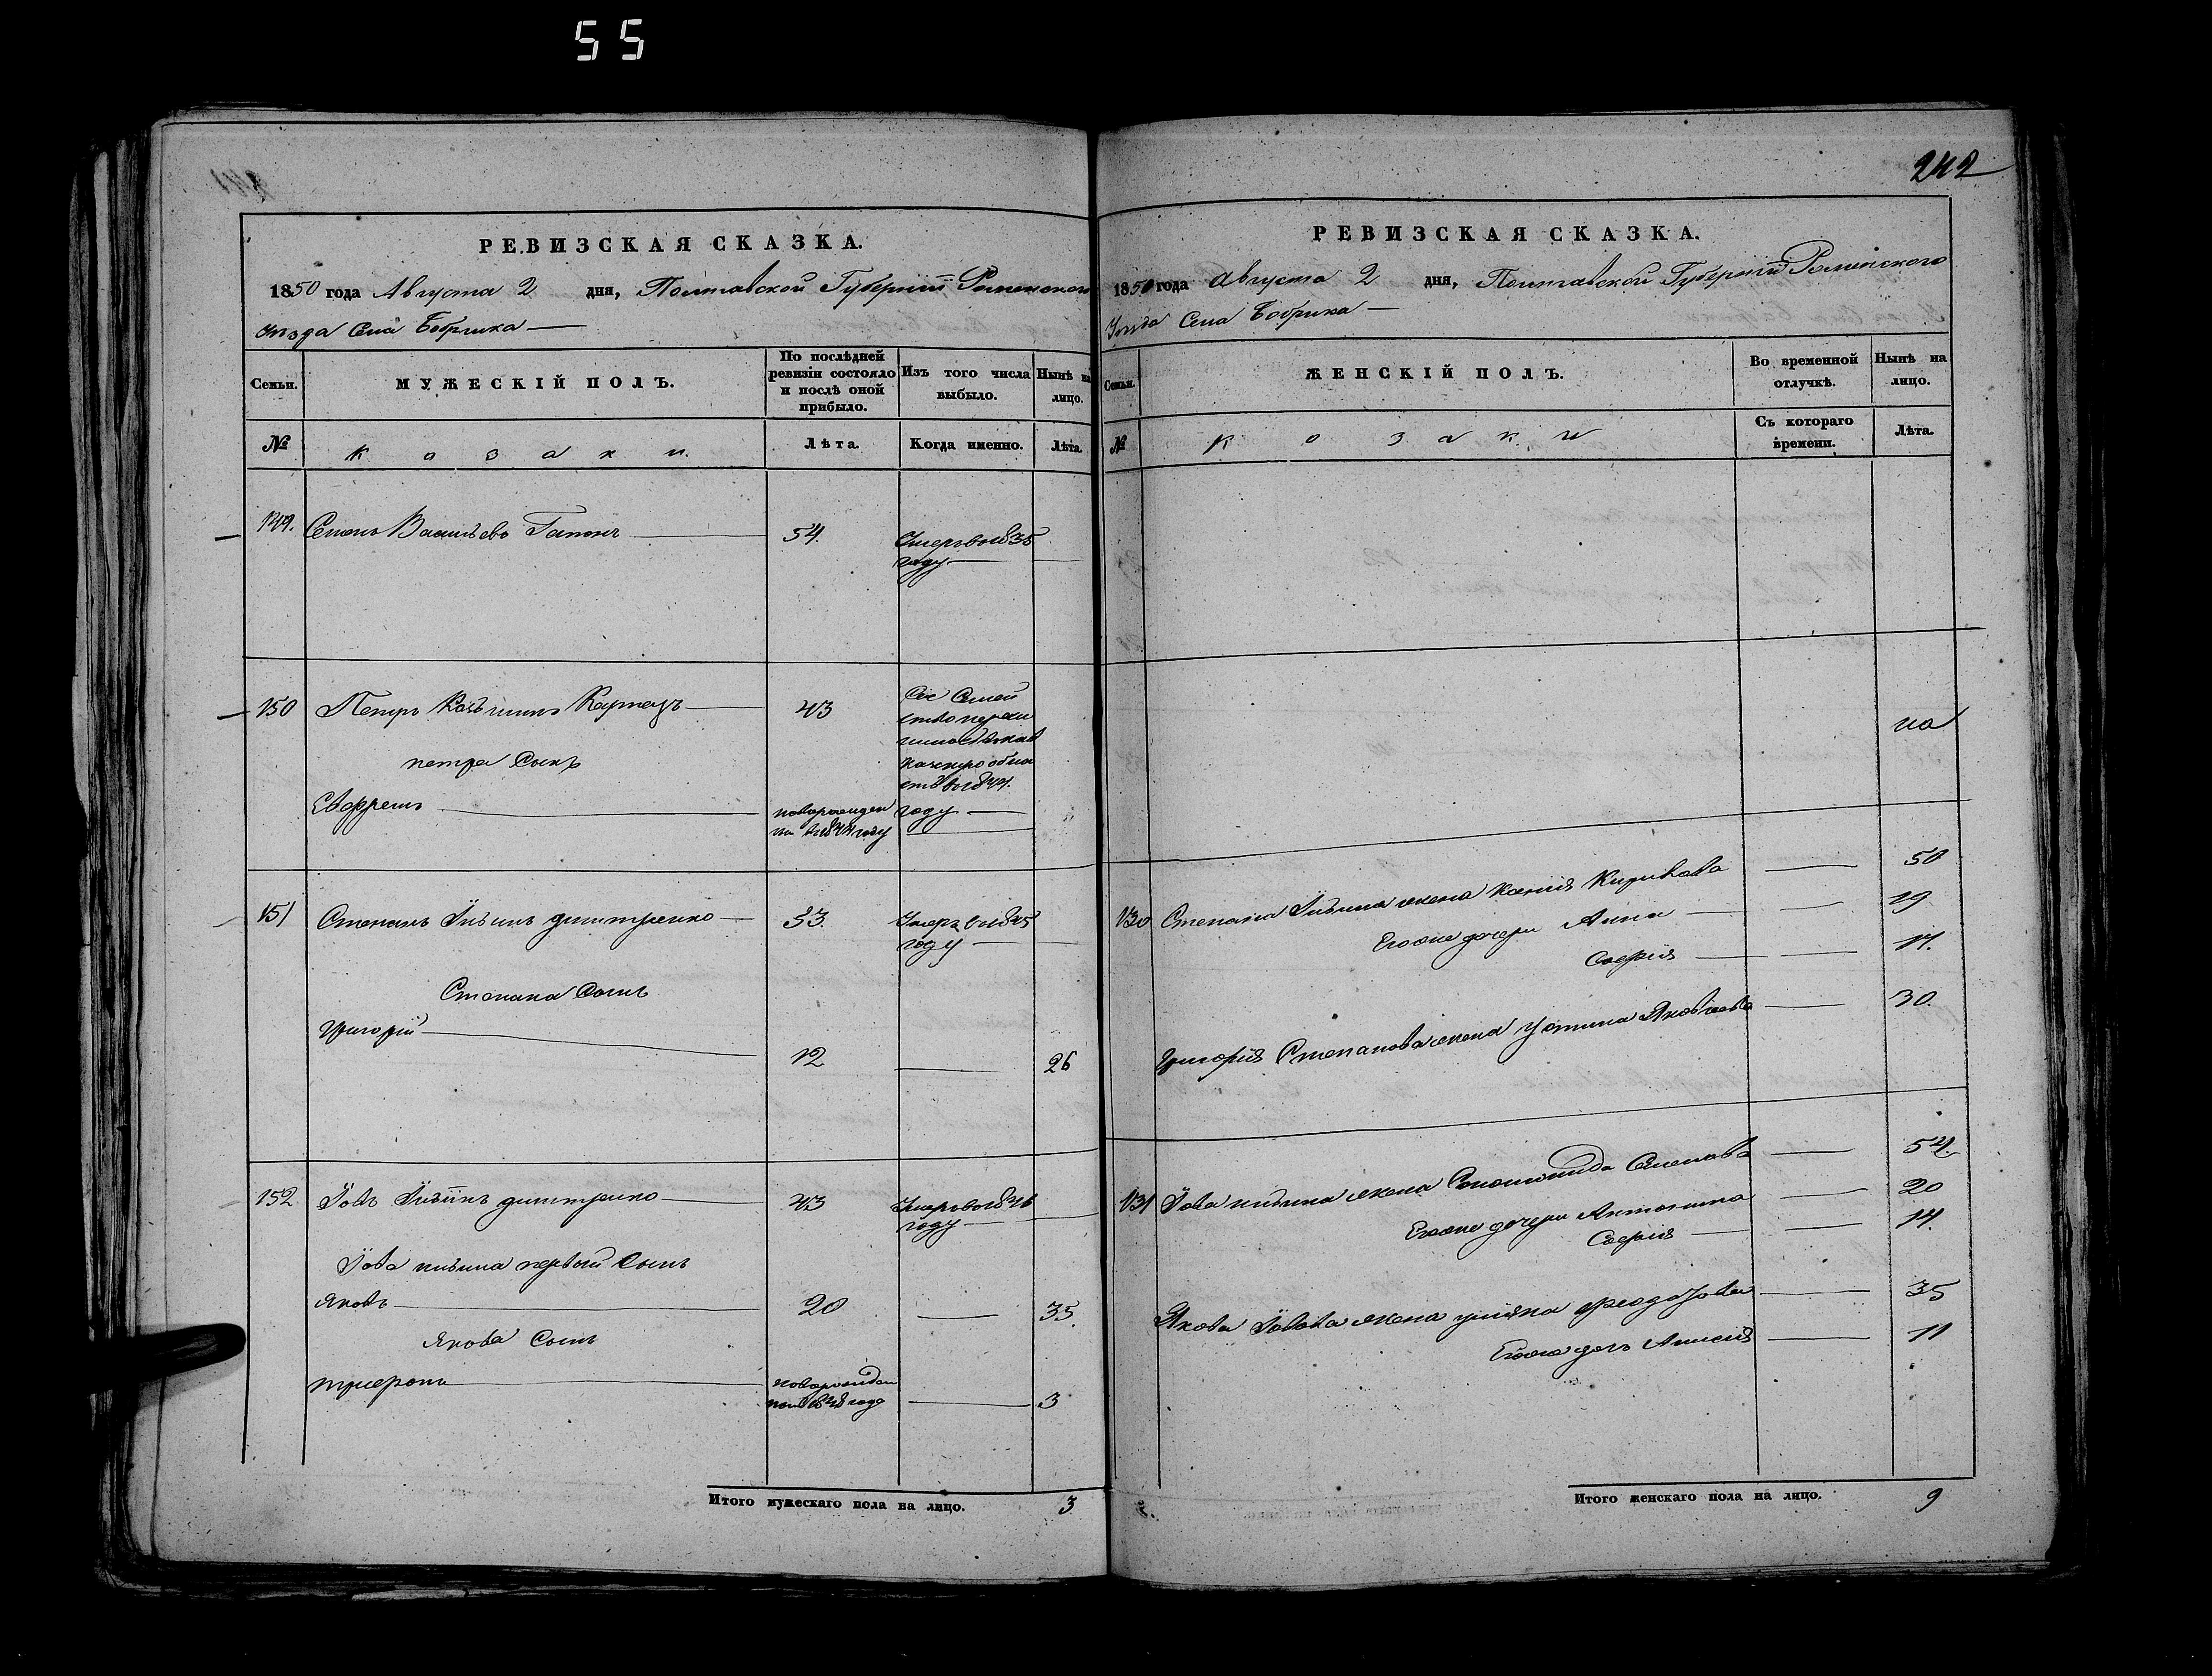 55
РЕВИЗСКАЯ СКАЗКА.
1850 года Августа 2 дня, Полтавской Губерніи Роменского
уѣзда Села Бобрика
Семьи.
МУЖЕСКІЙ ПОЛЪ.
По послѣдней ревизіи состояло и послѣ оной прибыло.
Изъ того числа выбыло.
Нынѣ на лицо.
№
козаки.
Лѣта.
Когда именно.
Лѣта.
149. Семенъ Васильевъ Гапонъ 54. Умеръ в 1835
году
150 Петръ 43
Петра Сынъ
Евфремъ новорожден
году
151 Степанъ Дмитренко 33. Умеръ в 1845
году
Степана Сынъ
Григорій
12 26
152 Іовъ Дмитренко 43 Умеръ в 1846
году
Іова первый Сынъ
Яковъ 20 35.
Якова Сынъ
Трифонъ новорожден
1848 года 3
Итого мужескаго пола на лицо. 3
242
РЕВИЗСКАЯ СКАЗКА.
1850 года Августа 2 дня, Полтавской Губерніи Роменского
Уѣзда Села Бобрика
Семьи.
ЖЕНСКІЙ ПОЛЪ.
Во временной отлучкѣ.
Нынѣ на лицо.
№
козаки
Съ котораго времени.
Лѣта.
130 Степана жена Ксенія 50
Егоже дочери Анна 19
Софія 14.
Григорія Степанова жена Устина Яковлева 30.
131 Іова жена Семенова 54.
Егоже дочери Антонина 20
Софія 14.
Якова Іовова жена Уліяна 35
Егоже дочь Анисія 11
Итого женскаго пола на лицо. 9